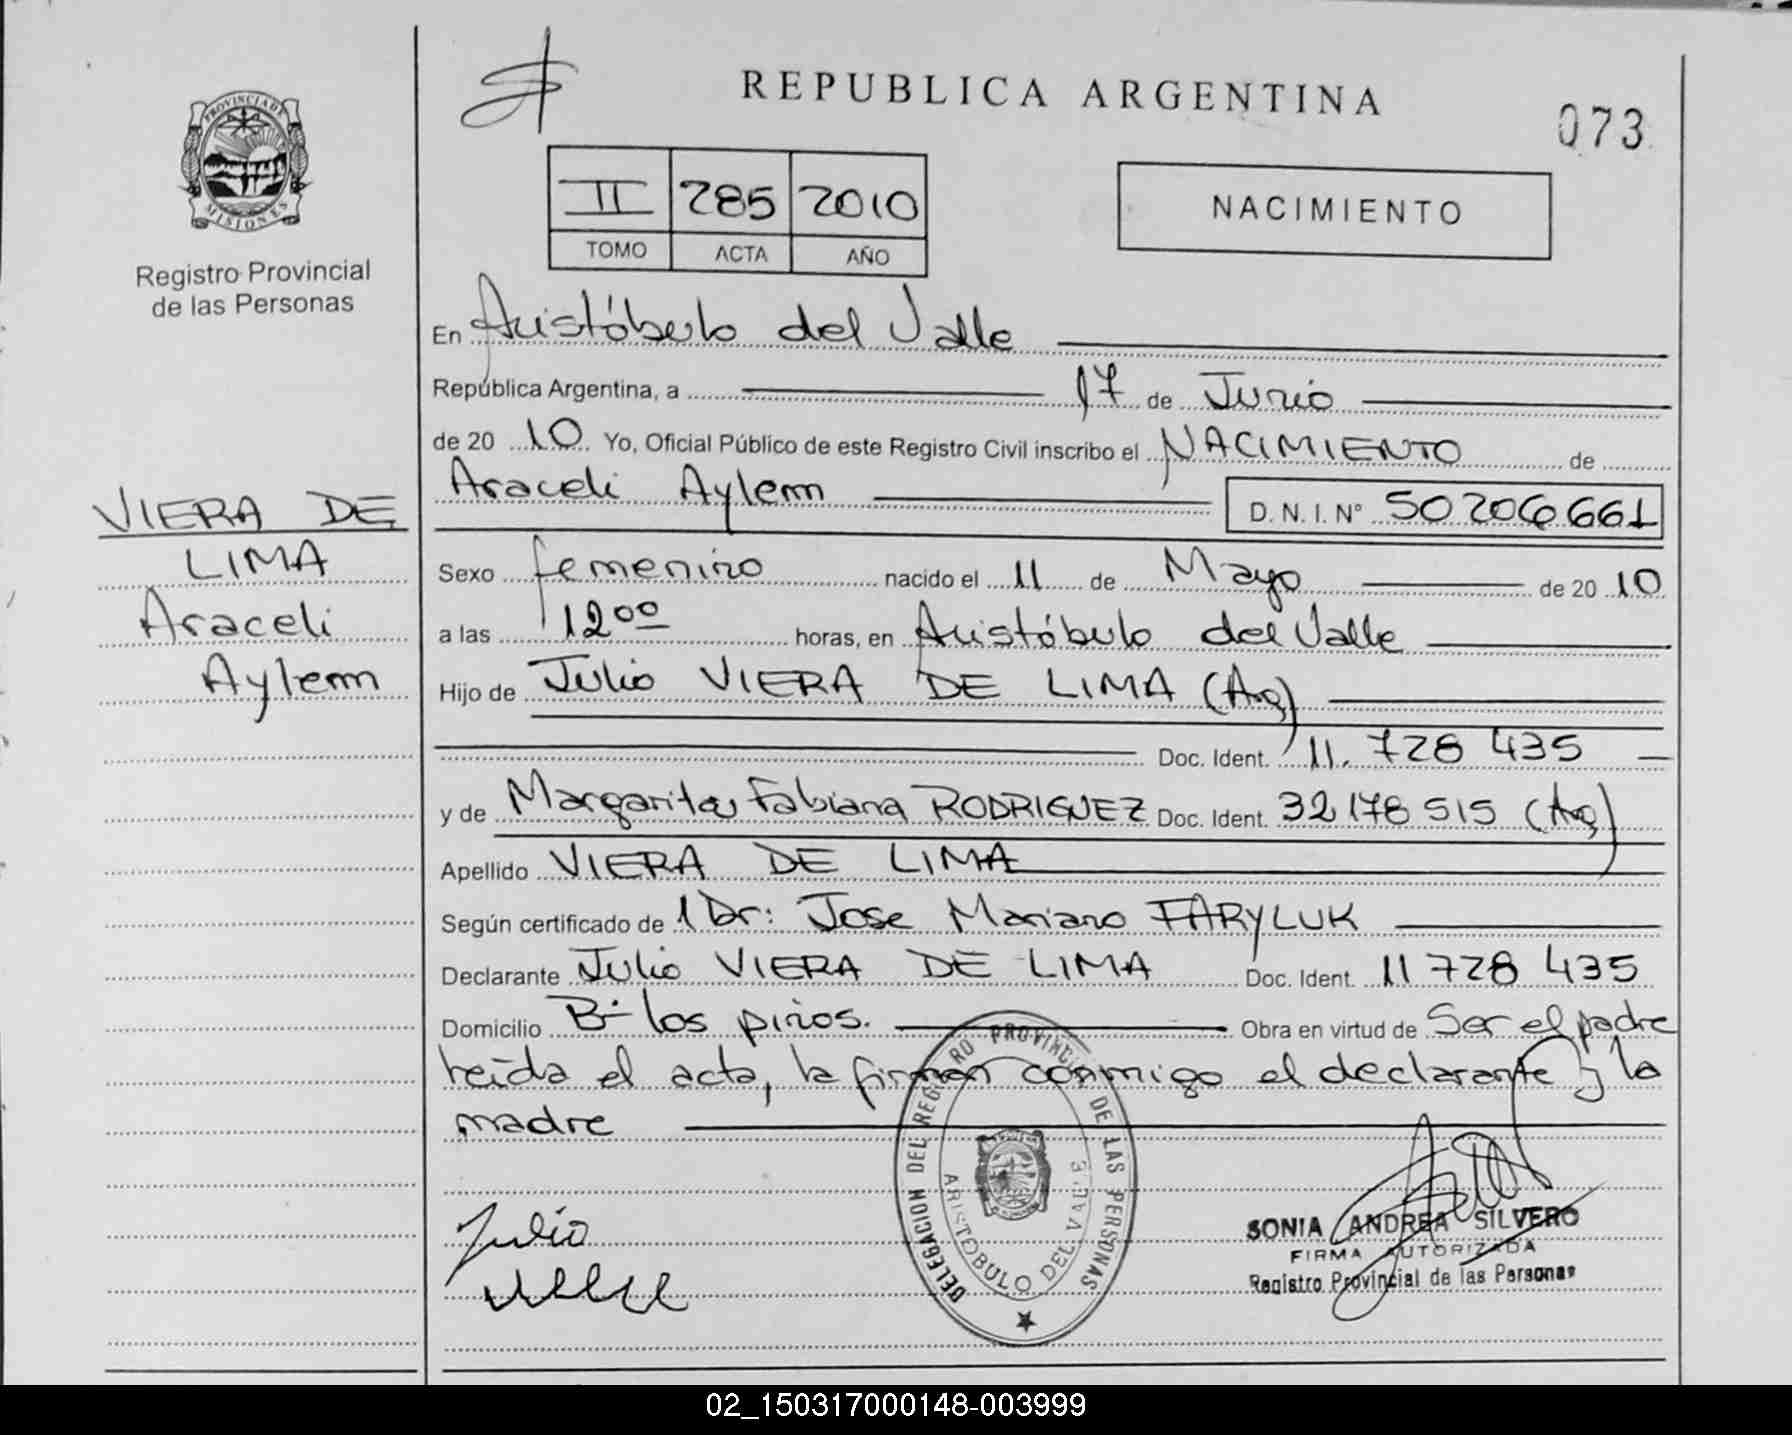 REPUBLICA ARGENTINA
073
PROVINCIA DE
MISIONES
Registro Provincial
de las Personas
II 285 2010
TOMO ACTA AÑO
NACIMIENTO
En Aristóbulo del Valle
República Argentina, a 17 de Junio
de 20 10 Yo, Oficial Público de este Registro Civil inscribo el NACIMIENTO de
Araceli Aylem D.N.I. N° 50206661
VIERA DE
LIMA
Araceli
Aylem
Sexo femenino nacido el 11 de Mayo de 20 10
a las 12 00 horas, en Aristóbulo del Valle
Hijo de Julio VIERA DE LIMA (Arg)
Doc. Ident. 11.728 435
y de Margarita Fabiana RODRIGUEZ Doc. Ident. 32 178 515 (Arg)
Apellido VIERA DE LIMA
Según certificado de 1 Dr: Jose Mariano FARYLUK
Declarante Julio VIERA DE LIMA Doc. Ident. 11 728 435
Domicilio B- los pinos. Obra en virtud de Ser el padre
leída el acta, la firman conmigo el declarante y la
madre
DELEGACION DEL REGISTRO PROVINCIAL DE LAS PERSONAS
ARISTOBULO DEL VALLE
Julio
SONIA ANDREA SILVERO
FIRMA AUTORIZADA
Registro Provincial de las Personas
02_150317000148-003999